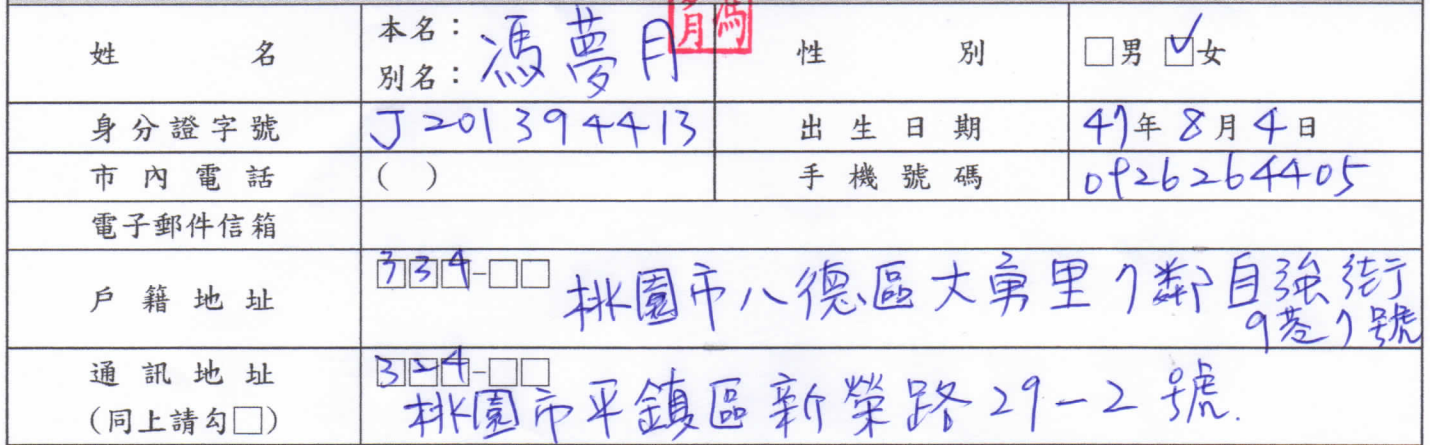 姓名 本名：馮夢月 別名： 性別 □男 ☑女
身分證字號 J201394413 出生日期 47年8月4日
市內電話 ( ) 手機號碼 0926264405
電子郵件信箱
戶籍地址 334-□□ 桃園市八德區大勇里7鄰自強街
9巷7號
通訊地址 324-□□
(同上請勾□) 桃園市平鎮區新榮路29-2號.